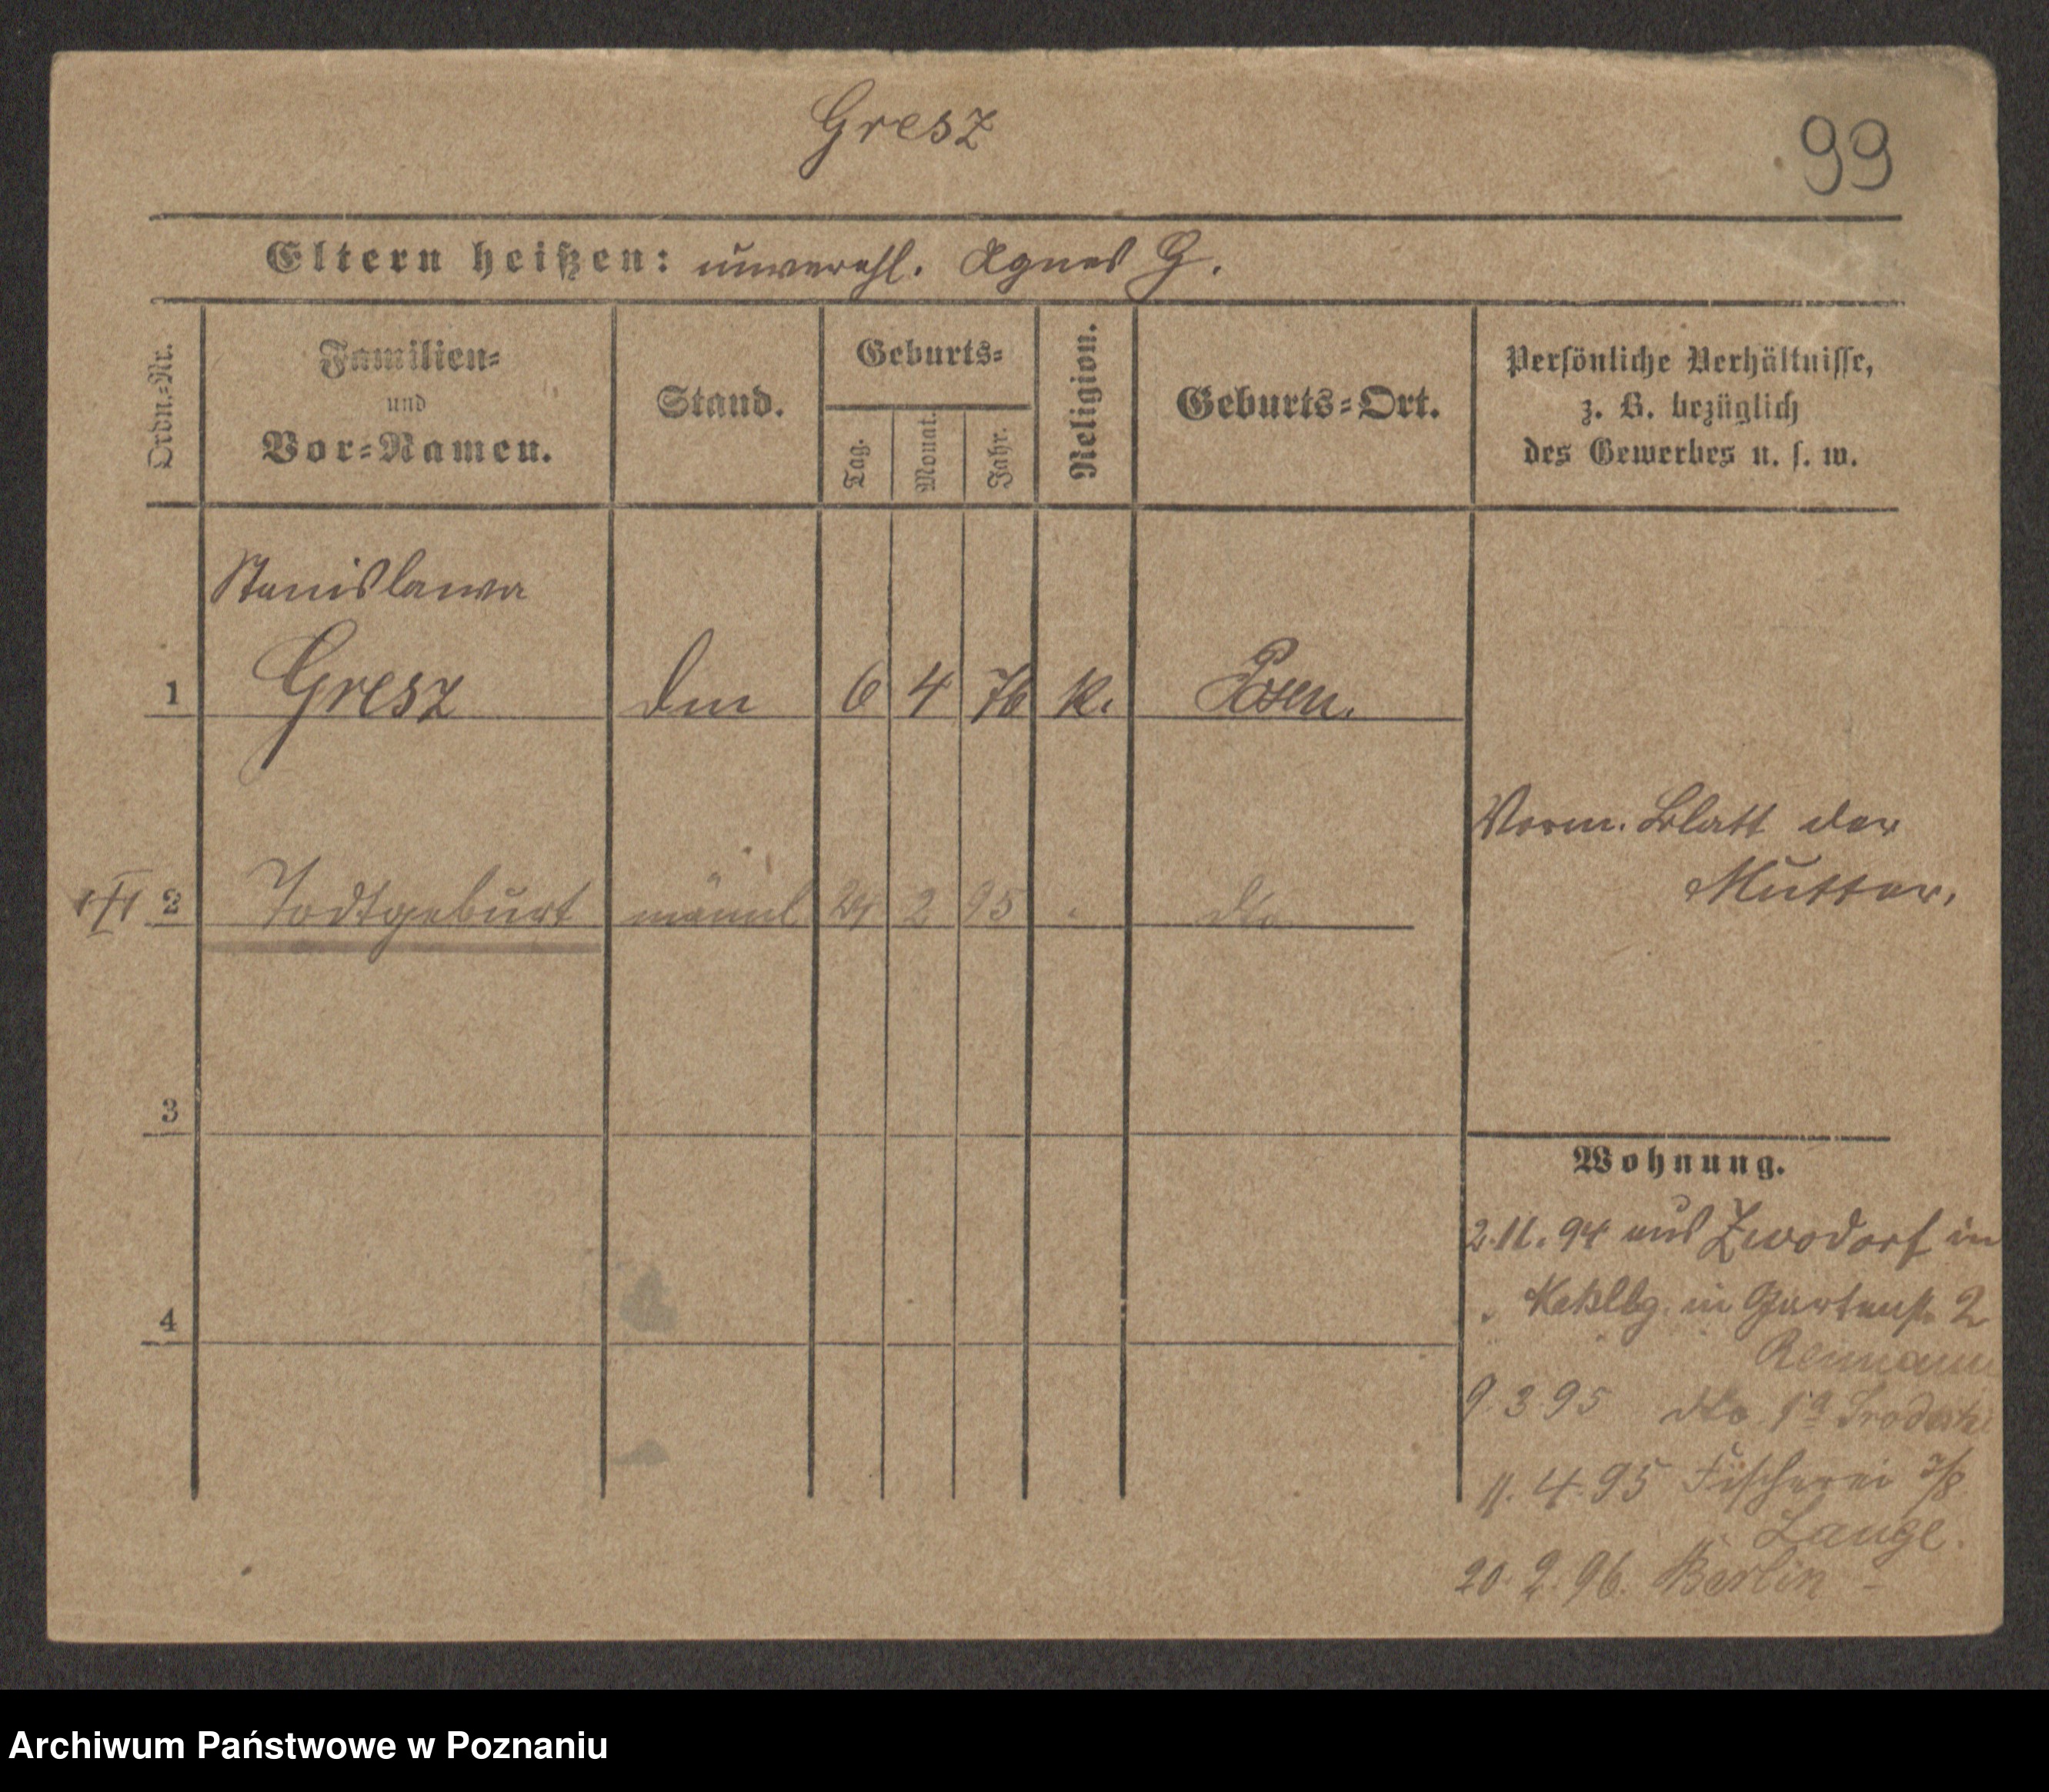 Gresz
99
Eltern heißen: unverehl. Agnes G.
Ordn.-Nr.
Familien-
und
Vor-Namen.
Stand.
Geburts-
Tag.
Monat.
Jahr.
Religion.
Geburts-Ort.
Persönliche Verhältnisse,
z. B. bezüglich
des Gewerbes u. s. w.
Stanislawa
1 Gresz 6 4 76 k. Posen.
Vorm. Blatt der
Mutter.
2 Todtgeburt männl 24 2 95 dto
3
Wohnung.
2.11.94 aus Zwodorf in
in Gartenstr. 2
4
9.3.95 dto
11.4.95 Fischerei 7/8
Lange.
20.2.96. Berlin -
Archiwum Państwowe w Poznaniu